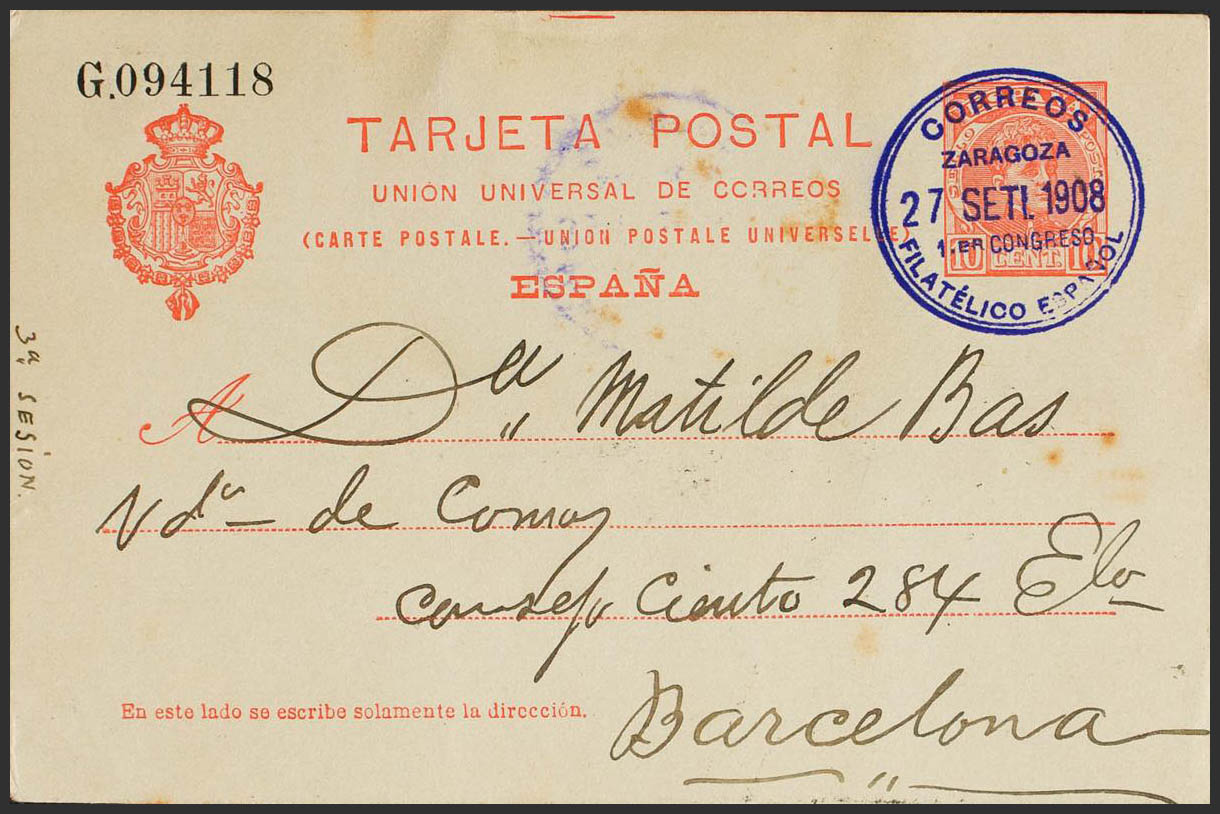 G.094118
TARJETA POSTAL
UNIÓN UNIVERSAL DE CORREOS
(CARTE POSTALE.—UNION POSTALE UNIVERSELLE)
ESPAÑA
CORREOS
ZARAGOZA
27 SETI. 1908
1.ER CONGRESO
FILATÉLICO ESPAÑOL
10 CENT 10
3ª SESION.
A Dª Matilde Bas
Vdª de
Consejo Ciento 284
Barcelona
En este lado se escribe solamente la dirección.